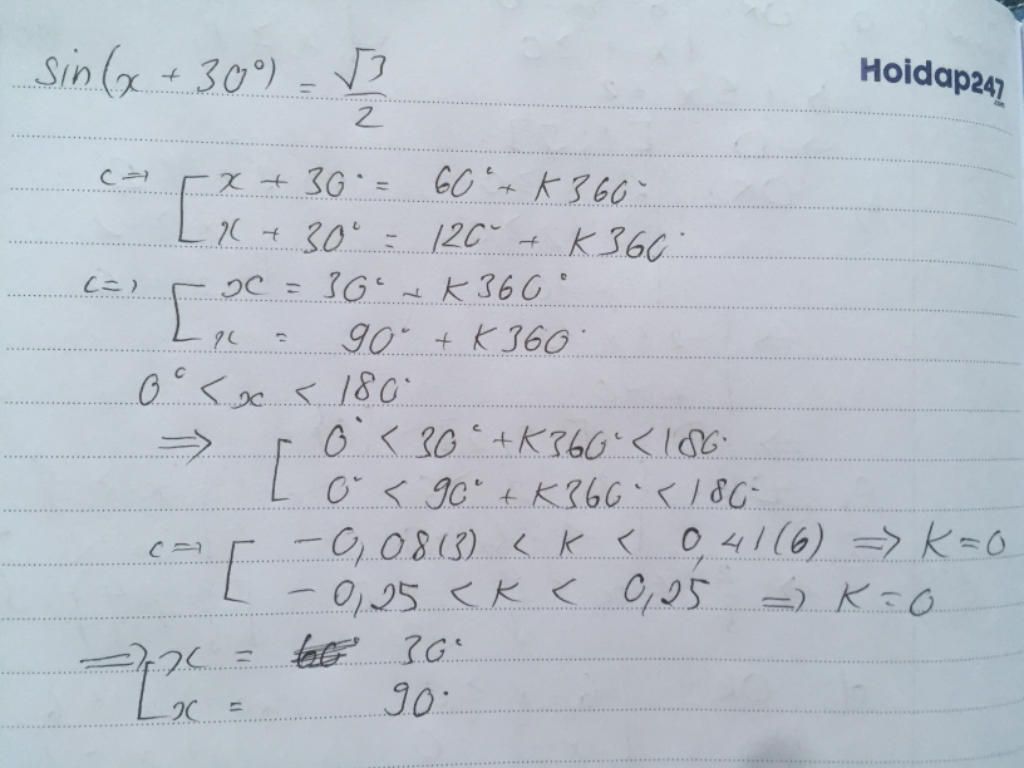 sin(x + 30°) = √3/2
Hoidap247.com
<=> [ x + 30° = 60° + K360°
x + 30° = 120° + K360°
<=> [ x = 30° + K360°
x = 90° + K360°
0° < x < 180°
=> [ 0° < 30° + K360° < 180°
0° < 90° + K360° < 180°
<=> [ -0,08(3) < K < 0,41(6) => K = 0
-0,25 < K < 0,25 => K = 0
=> [ x = 30°
x = 90°